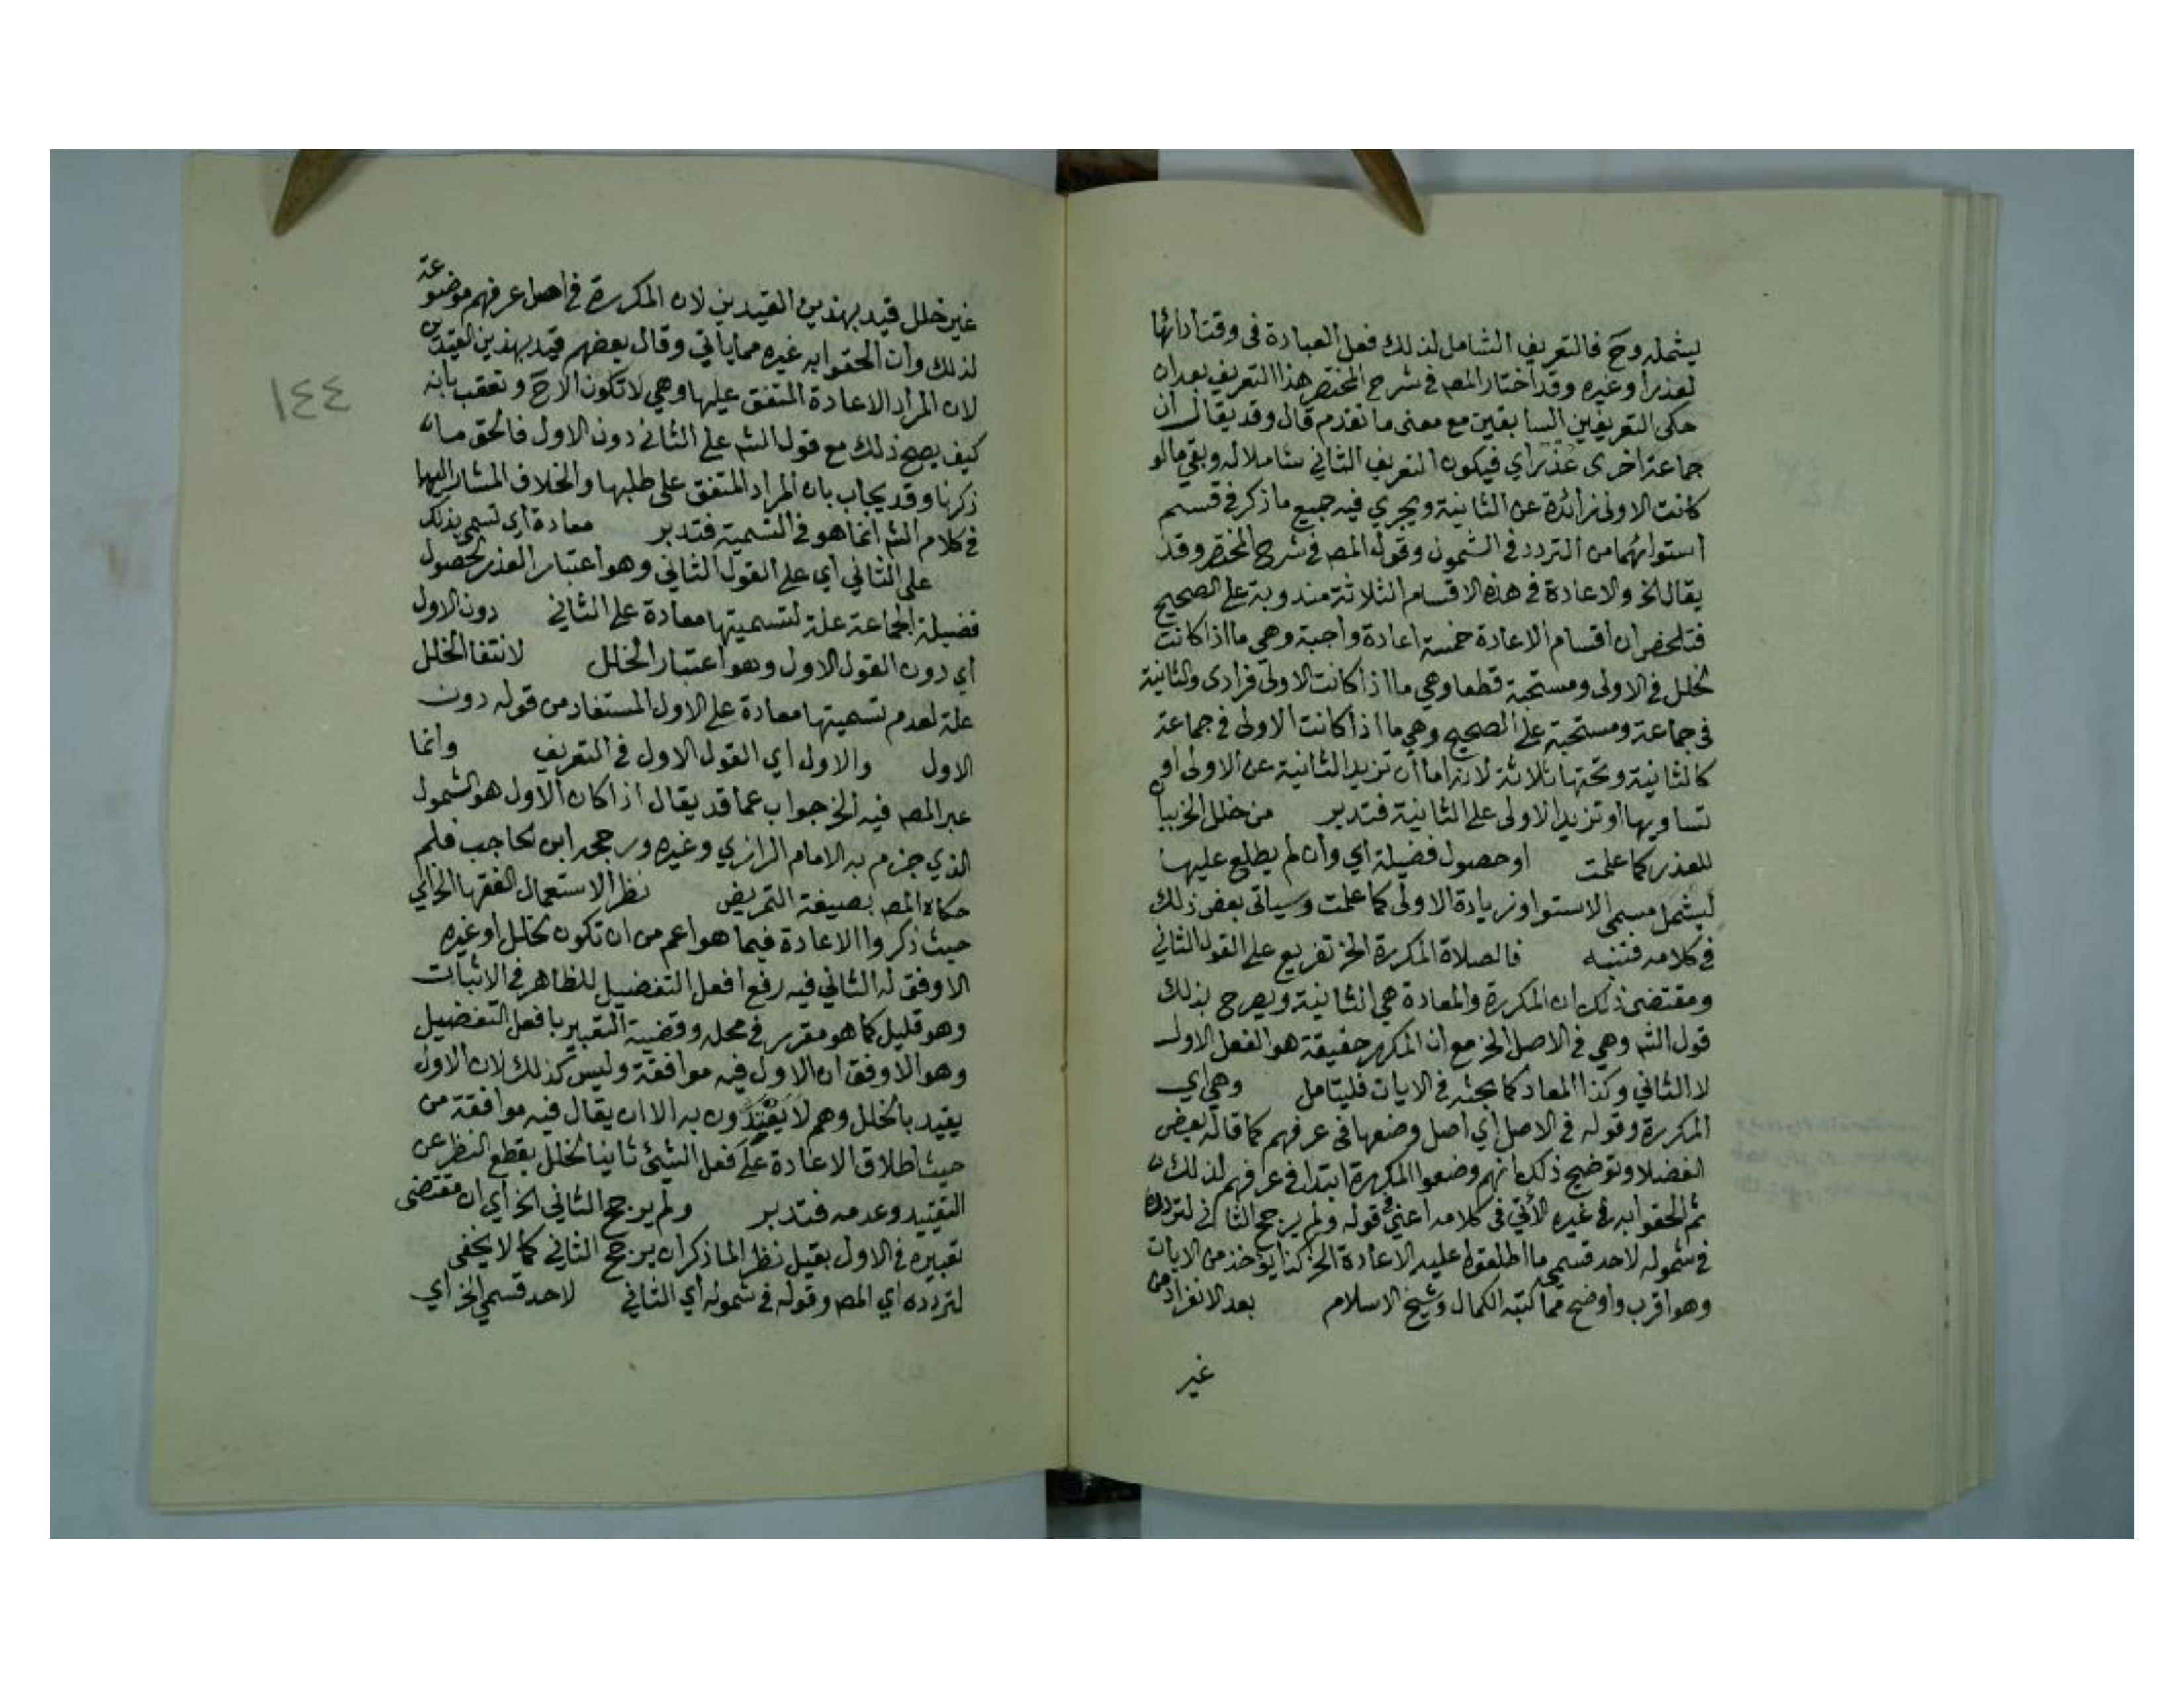 يشمله وح فالتعريف الشامل لذلك فعل العبادة فى وقت ادائها
لعذر او غيره وقد اختار المصـ فى شرح المختصر هذا التعريف بعد ان
حكى التعريفين السابقين مع معنى ما تقدم قال وقد يقال ان
جماعة اخرى عذر اي فيكون التعريف الثاني شاملا له وبقي ما لو
كانت الاولى زائدة عن الثانية ويجري فيه جميع ما ذكر فى قسم
استوائهما من التردد فى الشمول وقول المصـ فى شرح المختصر وقد
يقال الخ والاعادة فى هذه الاقسام الثلاثة مندوبة على الصحيح
فتلخص ان اقسام الاعادة خمسة اعادة واجبة وهي ما اذا كانت
لخلل فى الاولى ومستحبة قطعا وهي ما اذا كانت الاولى فرادى والثانية
فى جماعة ومستحبة على الصحيح وهي ما اذا كانت الاولى فى جماعة
كالثانية وتحتها ثلاثة لانه اما ان تزيد الثانية عن الاولى او
تساويها او تزيد الاولى على الثانية فتدبر من خلل الخ بيان
للعذر كما علمت او حصول فضيلة اي وان لم يطلع عليها
ليشمل مسمى الاستوا وزيادة الاولى كما علمت وسياتى بعض ذلك
فى كلامه فتنبه فالصلاة المكررة الخ تفريع على القول الثاني
ومقتضى ذلك ان المكررة والمعادة هي الثانية ويصرح بذلك
قول الشـ وهي فى الاصل الخ مع ان المكرر حقيقة هو الفعل الاول
لا الثاني وكذا المعاد كما بحثه فى الايات فليتامل وهي اي
المكررة وقوله فى الاصل اي اصل وضعها فى عرفهم كما قاله بعض
الفضلا وتوضيح ذلك انهم وضعوا المكررة ابتدا فى عرفهم لذلك
ثم الحقوا به فى غيره الآتي فى كلامه اعني قوله ولم يرجح الثاني لتردده
فى شموله لاحد قسمي ما اطلقوا عليه الاعادة الخ كذا يؤخذ من الايات
وهو اقرب واوضح مما كتبه الكمال وشيخ الاسلام بعد الانفراد من
غير
غير خلل قيد بهذين القيدين لان المكررة فى اصل عرفهم موضوعة
لذلك وان الحقوا به غيره مما ياتي وقال بعضهم قيد بهذين القيدين
لان المراد الاعادة المتفق عليها وهي لا تكون الا ح وتعقب بانه
كيف يصح ذلك مع قول الشـ على الثاني دون الاول فالحق ما
ذكرنا وقد يجاب بان المراد المتفق على طلبها والخلاف المشار اليها
فى كلام الشـ انما هو فى التسمية فتدبر معادة اي تسمى بذلك
على الثاني اي على القول الثاني وهو اعتبار العذر لحصول
فضيلة الجماعة علة لتسميتها معادة على الثاني دون الاول
اي دون القول الاول وهو اعتبار الخلل لانتفا الخلل
علة لعدم تسميتها معادة على الاول المستفاد من قوله دون
الاول والاول اي القول الاول فى التعريف وانما
عبر المصـ فيه الخ جواب عما قد يقال اذا كان الاول هو الشمول
الذي جزم به الامام الرازي وغيره ورجحه ابن الحاجب فلم
حكاه المصـ بصيغة التمريض نظرا لاستعمال الفقها الخ اي
حيث ذكروا الاعادة فيما هو اعم من ان تكون لخلل او غيره
الاوفق له الثاني فيه رفع افعل التفضيل للظاهر فى الاثبات
وهو قليل كما هو مقرر فى محله وقضية التعبير بافعل التفضيل
وهو الاوفق ان الاول فيه موافقة وليس كذلك لان الاول
يقيد بالخلل وهم لا يقيدون به الا ان يقال فيه موافقة من
حيث اطلاق الاعادة على فعل الشيئ ثانيا لخلل بقطع النظر عن
التقييد وعدمه فتدبر ولم يرجح الثاني الخ اي ان مقتضى
تعبيره فى الاول بقيل نظرا لما ذكر ان يرجح الثاني كما لا يخفى
لتردده اي المصـ وقوله فى شموله اي الثاني لاحد قسمي الخ اي
١٤٤